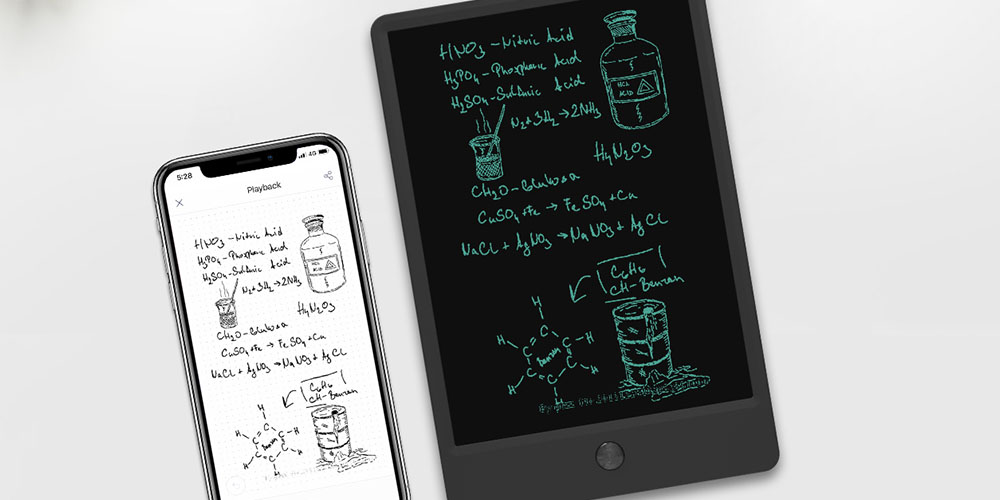 5:28
4G
Playback
HNO3 - Nitric Acid
H3PO4 - Phosphoric Acid
H2SO4 - Sulfuric Acid
HCl
ACID
N2 + 3H2 → 2NH3
H4N2O3
CH2O -
CuSO4 + Fe → FeSO4 + Cu
NaCl + AgNO3 → NaNO3 + AgCl
C6H6
CH - Benzen
H
H C C H
Benzen
H C C H
C
H
HNO3 - Nitric Acid
H3PO4 - Phosphoric Acid
H2SO4 - Sulfuric Acid
HCl
ACID
N2 + 3H2 → 2NH3
H4N2O3
CH2O -
CuSO4 + Fe → FeSO4 + Cu
NaCl + AgNO3 → NaNO3 + AgCl
C6H6
CH - Benzen
H
C
H C C H
Benzen
H C C H
C
H